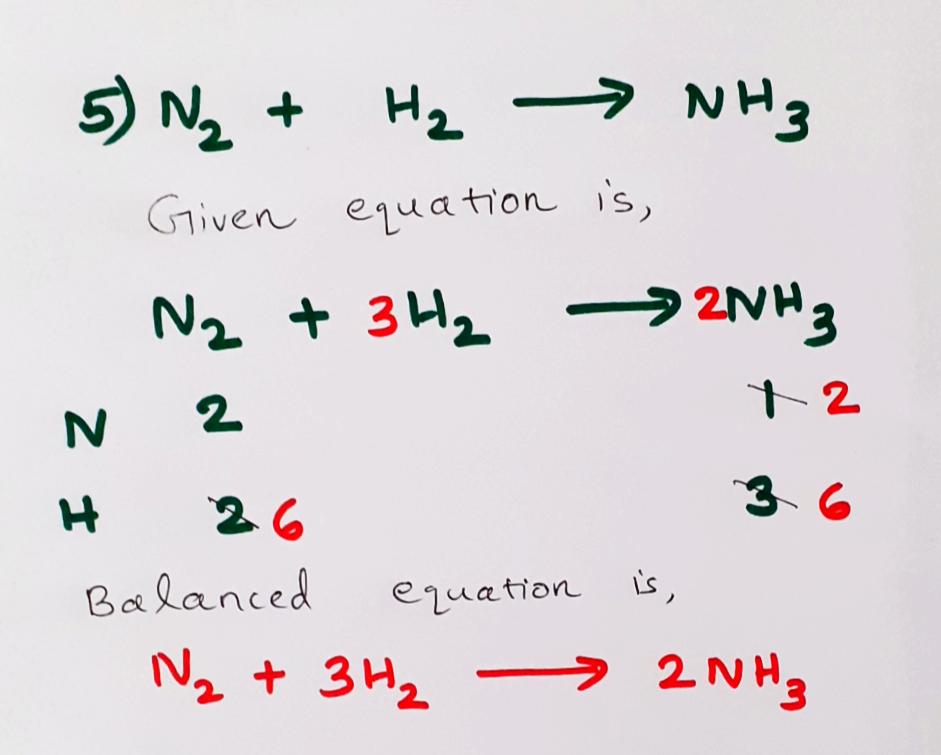 5) N₂ + H₂ ⟶ NH₃
Given equation is,
N₂ + 3H₂ ⟶ 2NH₃
N 2 1 2
H 2 6 3 6
Balanced equation is,
N₂ + 3H₂ ⟶ 2NH₃